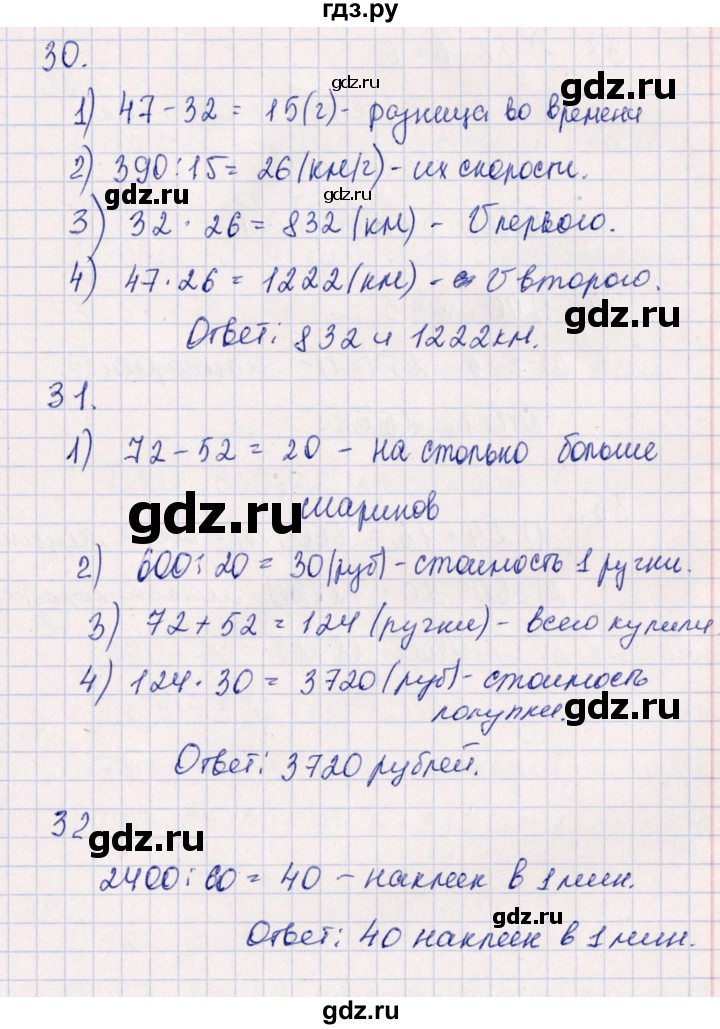 гдз.ру
30.
1) 47 - 32 = 15(г) - разница во времени
2) 390 : 15 = 26 (км/г) - их скорости.
3) 32 · 26 = 832 (км) - V первого.
4) 47 · 26 = 1222 (км) - V второго.
Ответ: 832 и 1222 км.
31.
1) 72 - 52 = 20 - на столько больше
шариков
2) 600 : 20 = 30 (руб) - стоимость 1 ручки.
3) 72 + 52 = 124 (ручки) - всего купили
4) 124 · 30 = 3720 (руб) - стоимость
покупки.
Ответ: 3720 рублей.
32
2400 : 60 = 40 - наклеек в 1 мин.
Ответ: 40 наклеек в 1 мин.
gdz.ru
gdz.ru
gdz.ru
gdz.ru
gdz.ru
gdz.ru
gdz.ru
gdz.ru
gdz.ru
gdz.ru
gdz.ru